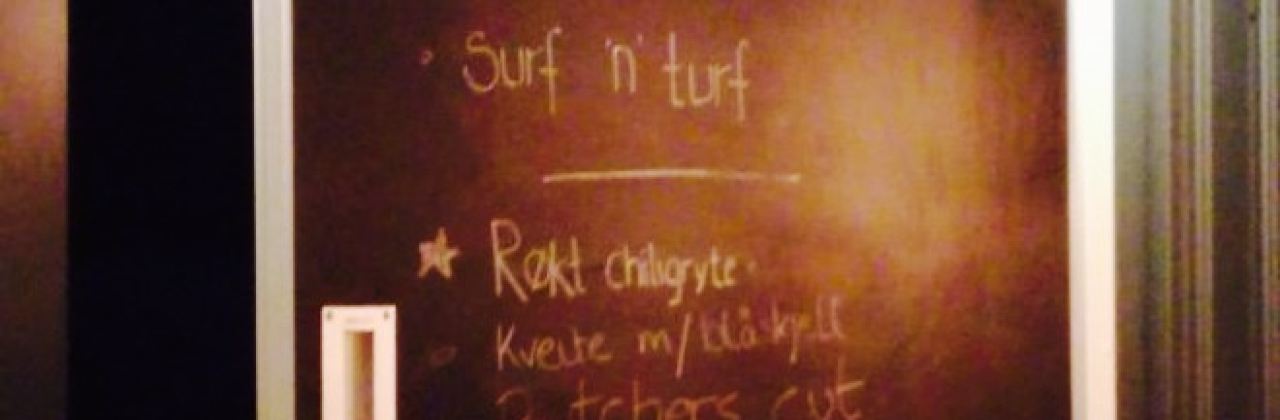 Surf 'n' turf
Røkt chiligryte
Kveite m/blåskjell
Butchers cut